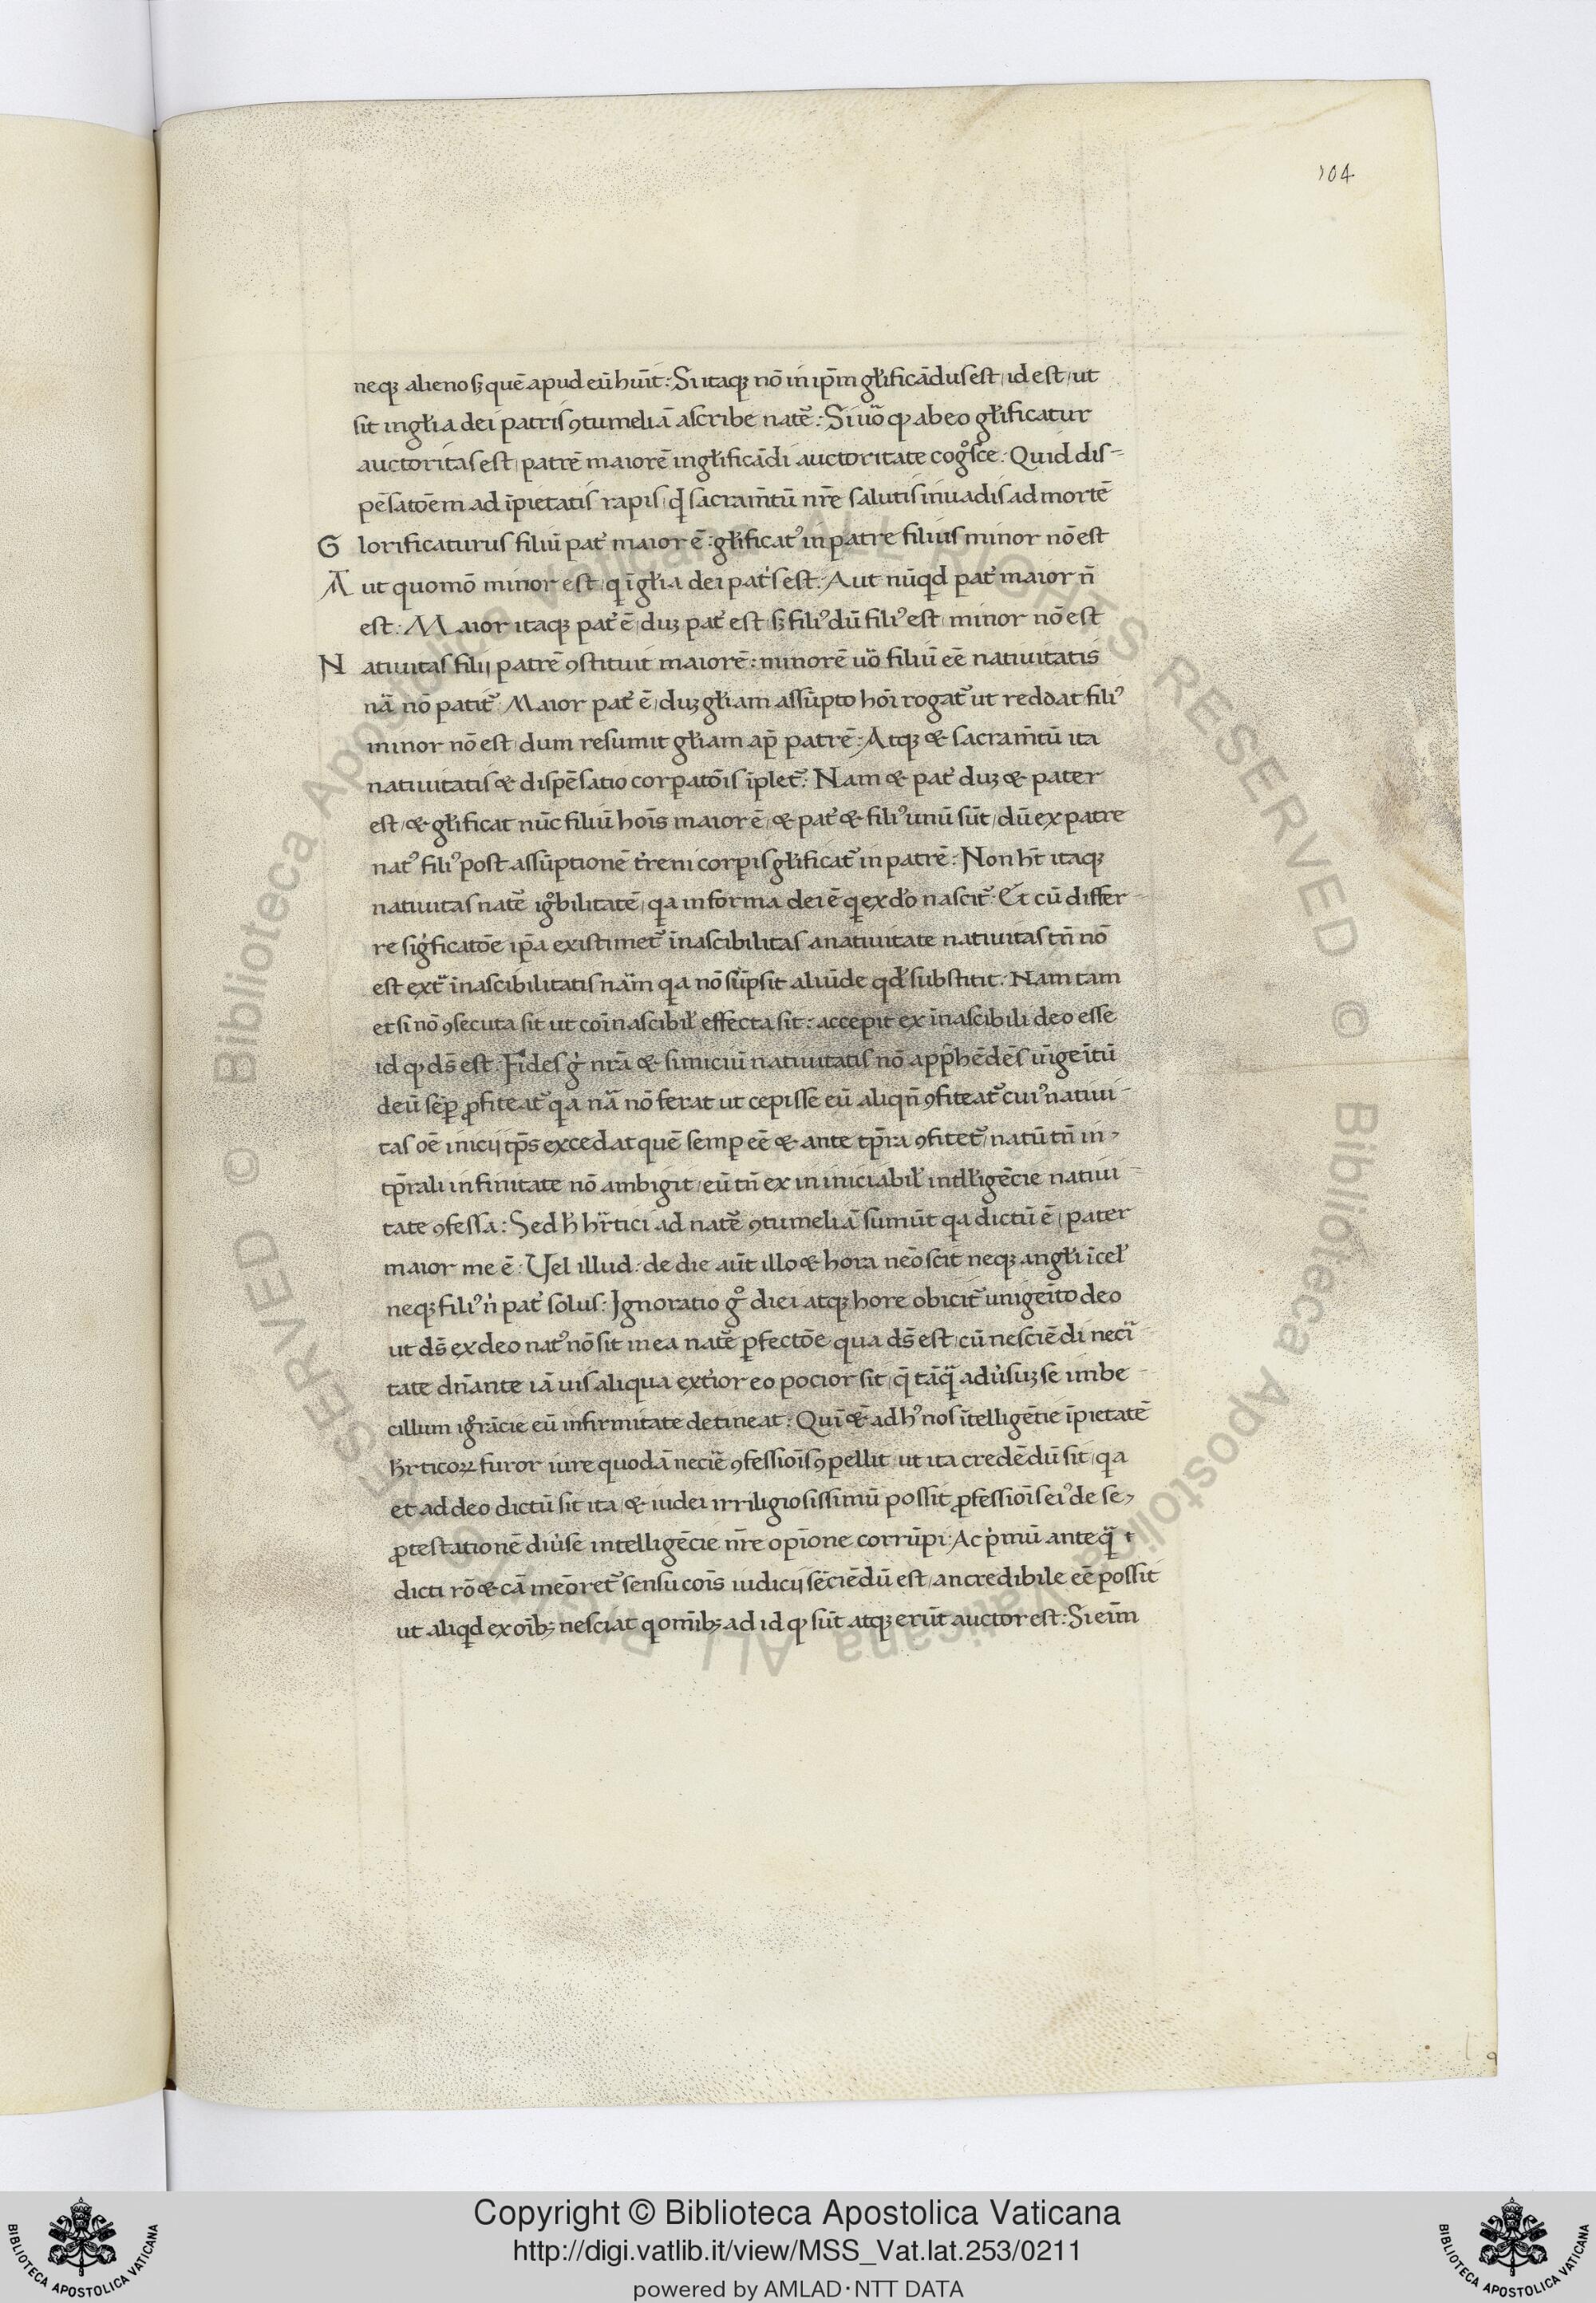 104
neqꝫ alieno sꝫ quē apud eū huīt : Si itaqꝫ nō in ip̄m gl̄ificādus est / id est / ut
sit in gl̄ia dei patris ꝯtumeliā ascribe natē : Si uō qꝫ ab eo gl̄ificatur
auctoritas est / patrē maiorē in gl̄ificādi auctoritate cogͦsce : Quid dis-
pēsatōem ad īpietatis rapis / qͥ sacram̄tū nr̄e salutis inuadis ad mortē
Glorificaturus filiū pat̉ maior ē : gl̄ificatꝰ in patre filius minor nō est
Aut quomō minor est / qͥ ī gl̄ia dei pat̉s est : Aut nūqͥd pat̉ maior n̄
est : Maior itaqꝫ pat̉ ē / duꝫ pat̉ est / sꝫ filiꝰ dū filiꝰ est / minor nō est
Natiuitas filij patrē ꝯstituit maiorē : minorē uō filiū eē natiuitatis
nā nō patit̉ Maior pat̉ ē / duꝫ gl̄iam assūpto hōi rogat̉ ut reddat filiꝰ
minor nō est / dum resumit gl̄iam ap̄ patrē : Atqꝫ & sacram̄tū ita
natiuitatis & dispēsatio corꝑatōis īplet̉ : Nam & pat̉ duꝫ & pater
est / & gl̄ificat nūc filiū hoīs maior ē / & pat̉ & filiꝰ unū sūt / dū ex patre
natꝰ filiꝰ post assūptionē t̉reni corꝑis gl̄ificat̉ in patrē : Non ht̄ itaqꝫ
natiuitas natē igͦbilitatē / qa in forma dei ē qͥ ex do nascit̉ : Et cū differ-
re sigͥficatōe ip̄a existimet̉ īnascibilitas a natiuitate natiuitas tn̄ nō
est extͣ īnascibilitatis nām qa nō sūpsit aliūde qd̄ substitit : Nam tam
et si nō ꝯsecuta sit ut coīnascibil̄ effecta sit : accepit ex īnascibili deo esse
id qꝫ ds̄ est : Fides gͥ nr̄a & si iniciū natiuitatis nō app̄hēdēs uīgeītū
deū sēꝑ ꝓfiteat̉ qa nā nō ferat ut cepisse eū aliqn̄ ꝯfiteat̉ cuiꝰ natiui-
tas oē inicij tp̄s excedat quē semꝑ eē & ante tp̄ra ꝯfitet̉ / natū tn̄ in-
tp̄rali infinitate nō ambigit / eū tn̄ ex in iniciabil̄ intll̄igēcie natiui-
tate ꝯfessa : Sed h̄ hr̄tici ad natē ꝯtumeliā sumūt qa dictū ē / pater
maior me ē : Uel illud : de die aūt illo & hora neō scit neqꝫ angl̄i ī cel̄
neqꝫ filiꝰ nͥ pat̉ solus : Ignoratio gͦ diei atqꝫ hore obicit̉ unigeīto deo
ut ds̄ ex deo natꝰ nō sit in ea natē ꝑfectōe qua ds̄ est / cū nesciēdi necī-
tate dn̄ante iā uis aliqua ext̉ior eo pocior sit / q̄ tāqͣ adủsuꝫ se imbe-
cillum igͦrācie eū infirmitate detineat : Quī &̄ ad hꝰ nos ītelligētie īpietatē
hr̄ticoꝝ furor iure quodā neciē ꝯfessioīs ꝯpellit / ut ita credēdū sit / qa
et ad deo dictū sit ita / & iudei irriligiosissimū possit ꝓfessioīs eiꝰ de se
ꝓtestationē diủse intelligēcie nr̄e opīone corrūpi : Ac pͥmū ante qͣ
dicti rō & cā meōret̉ sensu coīs iudicij sēciēdū est / an credibile eē possit
ut aliqͥd ex oībꝫ nesciat qͥ omībꝫ ad id qꝫ sūt atqꝫ erūt auctor est : Si eīm
Copyright © Biblioteca Apostolica Vaticana
http://digi.vatlib.it/view/MSS_Vat.lat.253/0211
powered by AMLAD·NTT DATA